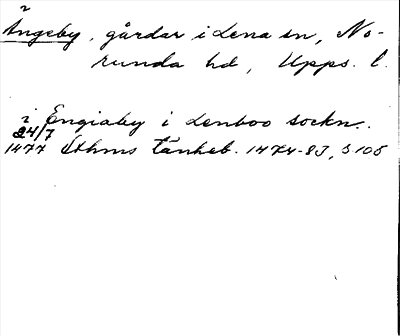 2
Ängeby, gårdar i Lena sn, No-
runda hd, Upps. l.
i Engiaby i Lenboo sockn..
24/7
1477 Sthms tänkeb. 1474-83, s 105